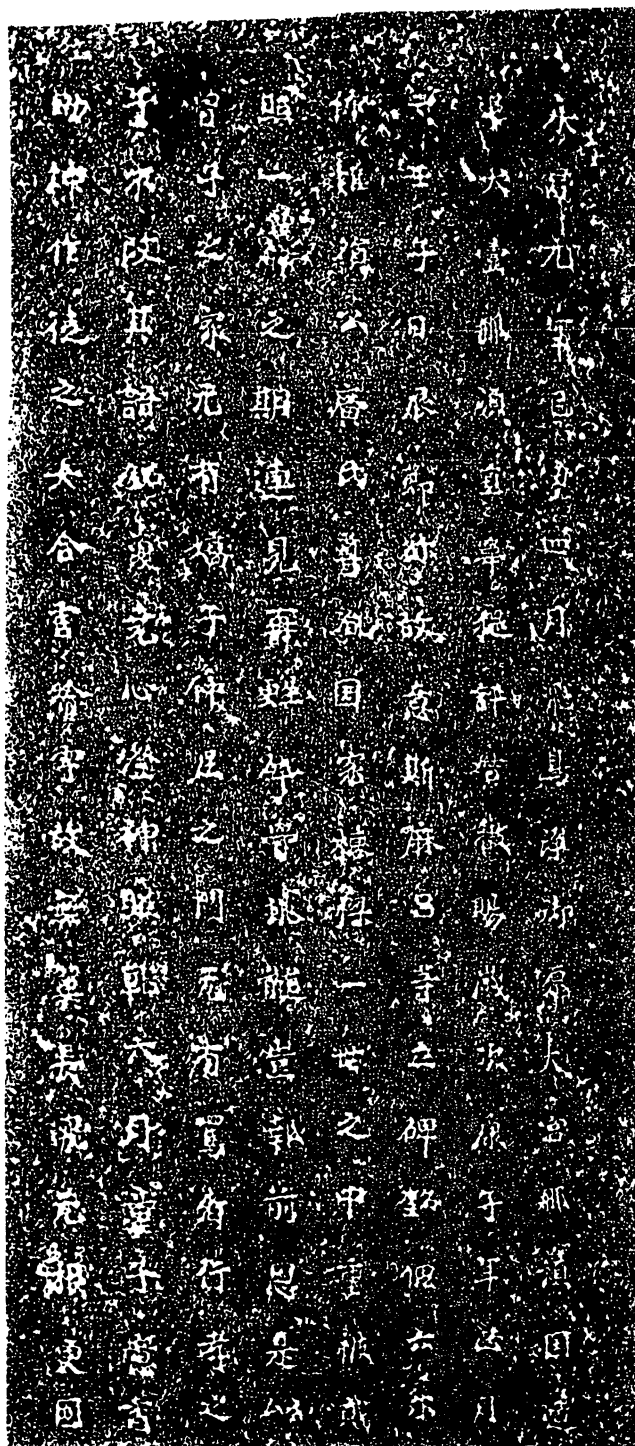 永昌元年己丑四月飛鳥浄御原大宮那須国造
追大壹那須直韋提評督被賜歳次康子年正月
二壬子日辰節殄故意斯麻呂等立碑銘偲云尓
仰惟殞公廣氏尊胤国家棟梁一世之中重被貳
照一命之期連見再甦砕骨挑髄豈報前恩是以
曾子之家无有嬌子仲尼之門无有罵者行孝之
子不改其語銘夏尭心澄神照乾六月童子意香
助坤作徒之大合言喩字故無翼長飛无根更固